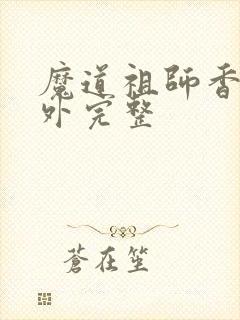 魔道祖師香
外完整
蒼在笙